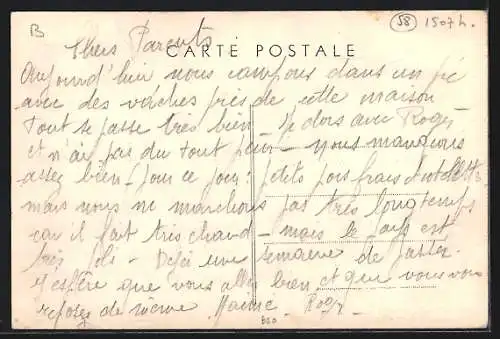 B
58
1507h.
Chers Parents
CARTE POSTALE
Aujourd'hui nous campons dans un pré
avec des vaches près de cette maison
Tout se passe très bien - Je dors avec Roger
et n'ai pas du tout peur - Nous mangeons
assez bien - pour ce jour : petits pois frais
mais nous ne marchons pas très longtemps
car il fait très chaud - mais le pays est
très joli - Déjà une semaine de passée.
J'espère que vous allez bien et que vous vous
reposez de même
Roger